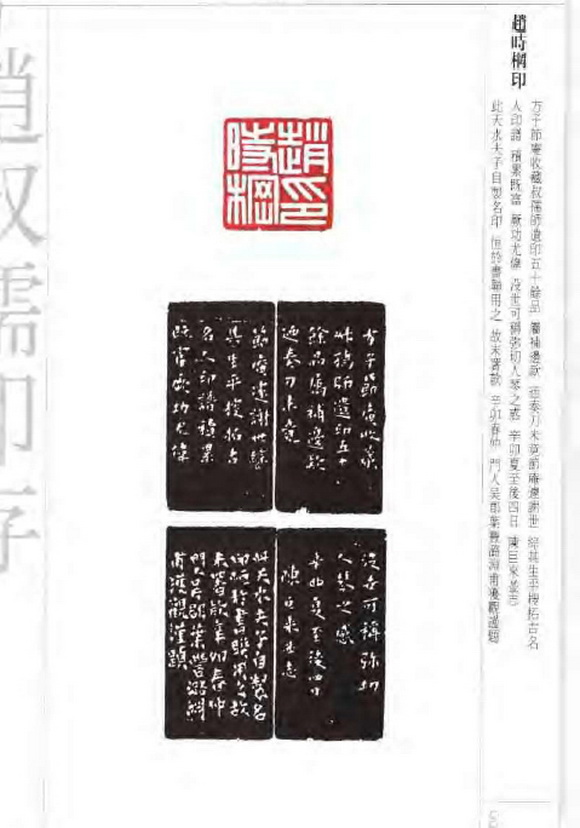 趙時棡印
方子節庵收藏叔孺師遺印五十餘品 屬補邊款 迺奏刀未竟 節庵遽謝世 綜其生平搜拓古名
人印譜 積累既富 厥功尤偉 沒世可稱 弥切人琴之感 辛卯夏至後四日 陳巨來並志
此天水夫子自製名印 恒於書聯用之 故未署款 辛卯春仲 門人吳郡葉豐潞淵甫獲觀謹題
趙時棡印
方子節庵收藏
叔孺師遺印五十
餘品屬補邊款
迺奏刀未竟
節庵遽謝世綜
其生平搜拓古
名人印譜積累
既富厥功尤偉
沒世可稱弥切
人琴之感
辛卯夏至後四日
陳巨來並志
此天水夫子自製名
印恒於書聯用之故
未署款辛卯春仲
門人吳郡葉豐潞淵
甫獲觀謹題
趙叔孺印存